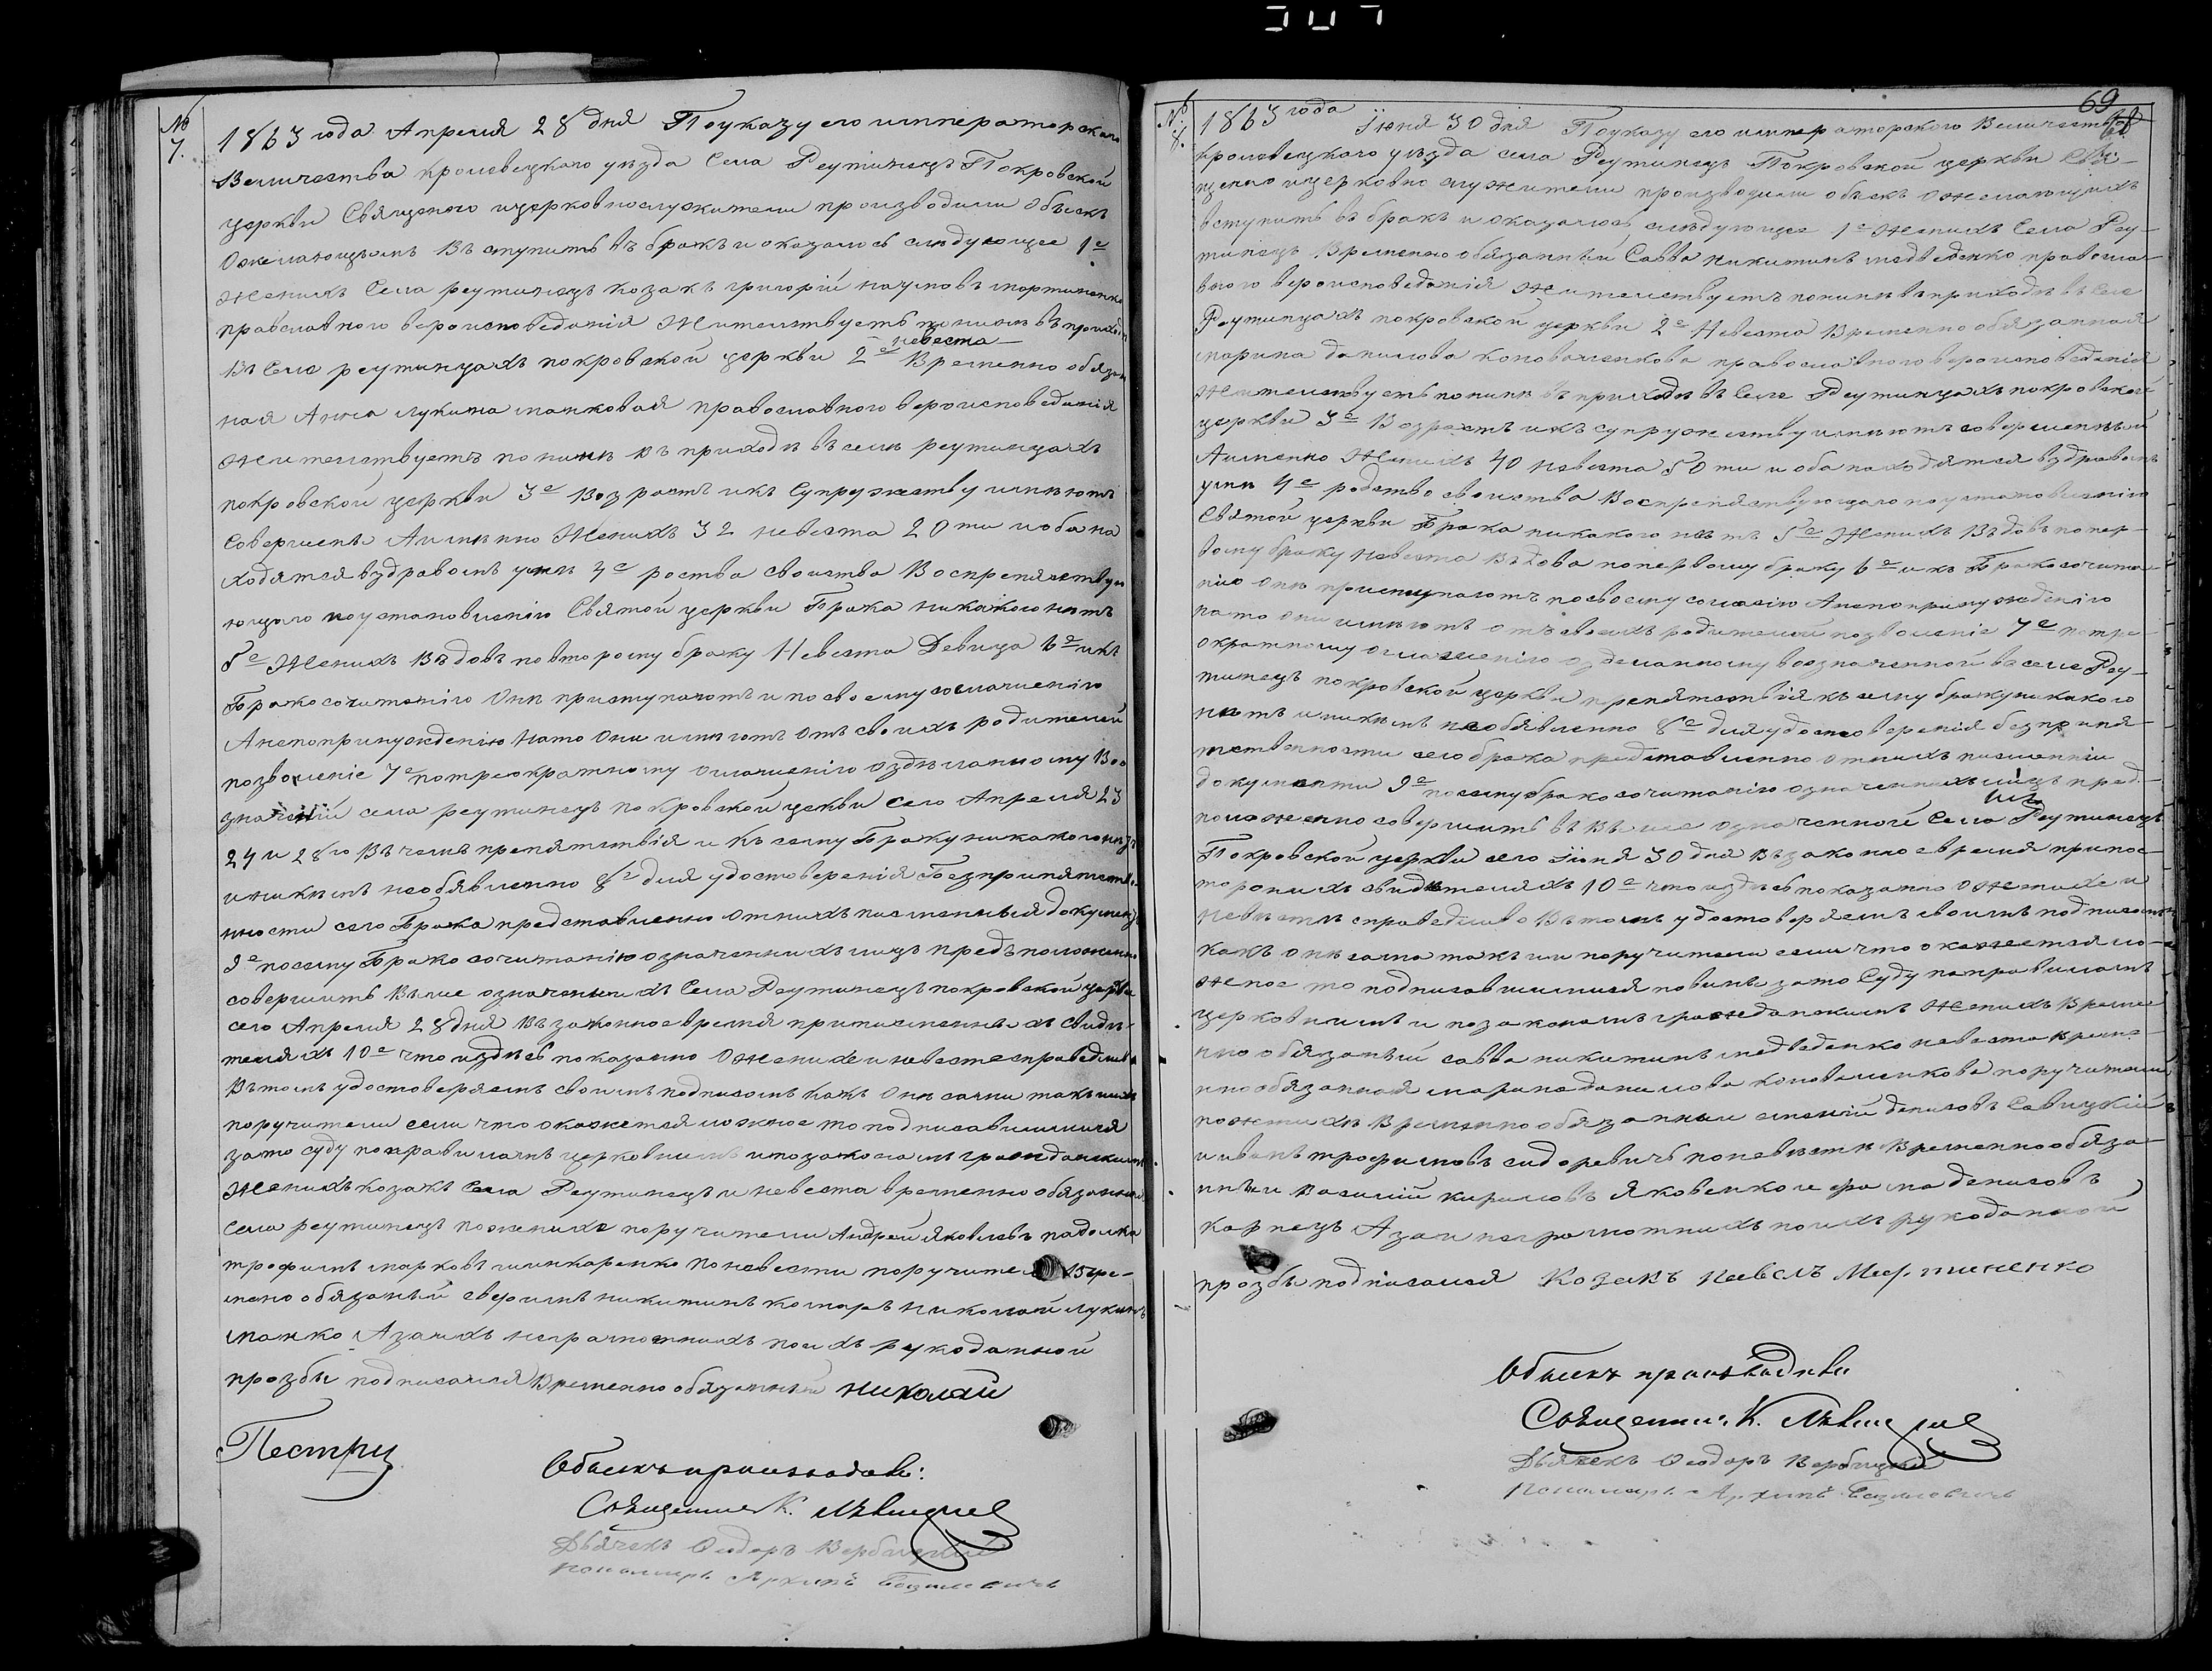 № 7.
1863 года Апреля 28 дня Поуказу его императорскаго
Величества кролевецкого уезда Села Реутинецъ Покровской
церкви Священого ицерковнослужители производили обыскъ
Ожелающымъ Вступить въ бракъ и оказалось следующее 1е
Женихъ Села реутинецъ козакъ григорій наумовъ мартиненко
православного вероисповеданія Жительствуетъ понинѣ въ приходѣ
Въ Селе реутинцахъ покровской церкви 2е невеста Временно обязан
ная Анна лукина манковая православного вероисповеданія
Жительствуетъ понинѣ въ приходѣ въ селѣ реутинцахъ
покровской церкви 3е Возрастъ икъ Супружеству имѣютъ
Совершенъ Аименно Женихъ 32 невеста 20ти иоба на
ходятся вздравомъ умѣ 4е роства своиства Воспрепятству
ющаго поустановленію Святой церкви Брака никакого нѣтъ
5е Женихъ Вдовъ повторому браку Невеста Девица 6е икъ
Бракосочитанію Онѣ приступаютъ и посвоему согласшенію
Анепопринужденію Нато Они имѣютъ отъ своихъ родителей
позволеніе 7е потреократному оглашенію оздѣланному Воо
значеній села реутинецъ покровской цекви сего Апреля 23
24 и 28го Въ чемъ препятствія и къ сему браку никакого нѣтъ
иникѣмъ необявленно 8е для удостоверенія Безприпятстве
нности сего Брака представленно отнихъ писменныя документы
9е посему Бракосочитанію означенихъ лицъ предположенно
совершить Выше означеныхъ Села Реутинецъ покровской церкви
сего Апреля 28 дня Въ законное время припостороннихъ свидѣ
теляхъ 10е что издѣсь показанно Ожениxе и невесте справедливо
Вътомъ удостоверяемъ своимъ подписомъ какъ Онѣ сами такъ иихъ
поручители если что окажется ложное то подписавшимися
зато суду поправиламъ церковнимъ ипозаконамъ гражданскимъ
Женихъ козакъ Села Реутинецъ и невеста временно обязанная
села реутинецъ поженихе поручители Андрей яковлевъ падалка
трофимъ марковъ шинкаренко поневести поручители Вре-
мено обязаный сверимъ никитинъ комаръ николай лукинъ
манко Азаихъ неграмотнихъ поихъ рукоданной
прозбы подписался Временно обязанный Николай
Пестриц
Обыскъ производили:
Священник К. Левицкій
Дьячекъ Ѳеодоръ Вербицкий
Пономарь Архипъ Базилевичъ
69
№ 8.
1863 года Іюня 30 дня Поуказу его императорского Величества
кролевецкаго уезда села Реутинецъ Покровской церкви Свя-
щеного ицерковно служители производили обыскъ Ожелающихъ
вступить въ бракъ и оказалось следующее 1е Женихъ Села Реу-
тинецъ Временно обязанный Савва никитинъ медведенко правосла-
вного вероисповеданія Жительствуетъ понинѣ въприходѣ въ Селе
Реутинцахъ покровской церкви 2е Невеста Временно обязанная
марина данилова коноваленкова православного вероисповеданія
Жительствуетъ понинѣ въ приходѣ въ Селе Реутинцахъ покровской
церкви 3е Возрастъ икъ супружеству имѣютъ совершенный
Аименно Женихъ 40 невеста 50ти и оба находятся вздравомъ
умѣ 4е родство своиства Воспрепятствующаго поустановленію
Святой церкви Брака никакого нѣтъ 5е Женихъ Вдовъ попер-
вому браку Невеста Вдова попервому браку 6е икъ Бракосочита-
нію Онѣ приступаютъ посвоему согласію Анепопринужденію
нато Они имѣютъ отъ своихъ родителей позволеніе 7е потре-
ократному оглашенію оздѣланному воозначенной васеле Реу-
тинецъ покровской церкви препятствія къ сему браку никакого
нѣтъ иникѣмъ необявленно 8е для удостоверенія безпрепя-
тственности сего брака представленно отнихъ писменніи
документи 9е посему бракосочитанію означеннихъ лицъ пред-
положенно совершить въ Выше означенной Села Реутинецъ
Покровской церкви сего Іюня 30 дня Въ законное время припос-
торонихъ свидѣтеляхъ 10е что издѣсь показанно Ожениxе и
невестѣ справедливо Вътомъ удостоверяемъ своимъ подписомъ
какъ онѣ сами такъ ии поручители если что окажется ло-
жное то подписавшимися повинъ зато Суду поправиламъ
церковнимъ и позаконамъ гражданскимъ Женихъ Време-
нно обязаный савва никитинъ медведенко невеста време-
нно обязанная марина данилова коноваленкова поручители
поженихѣ Временно обязанныи денисовъ Савицкій
и иванъ трофимовъ сидоревичъ поневестѣ Временно обяза-
нныи Василій кириловъ Яковенко и фома денисовъ
карпецъ Азаи неграмотнихъ поихъ рукоданной
прозбы подписался Козакъ Павелъ Мартиненко
Обыскъ производили
Священник. К. Левицкій
Дьячекъ Ѳеодоръ Вербицкій
Пономарь Архипъ Базилевичъ